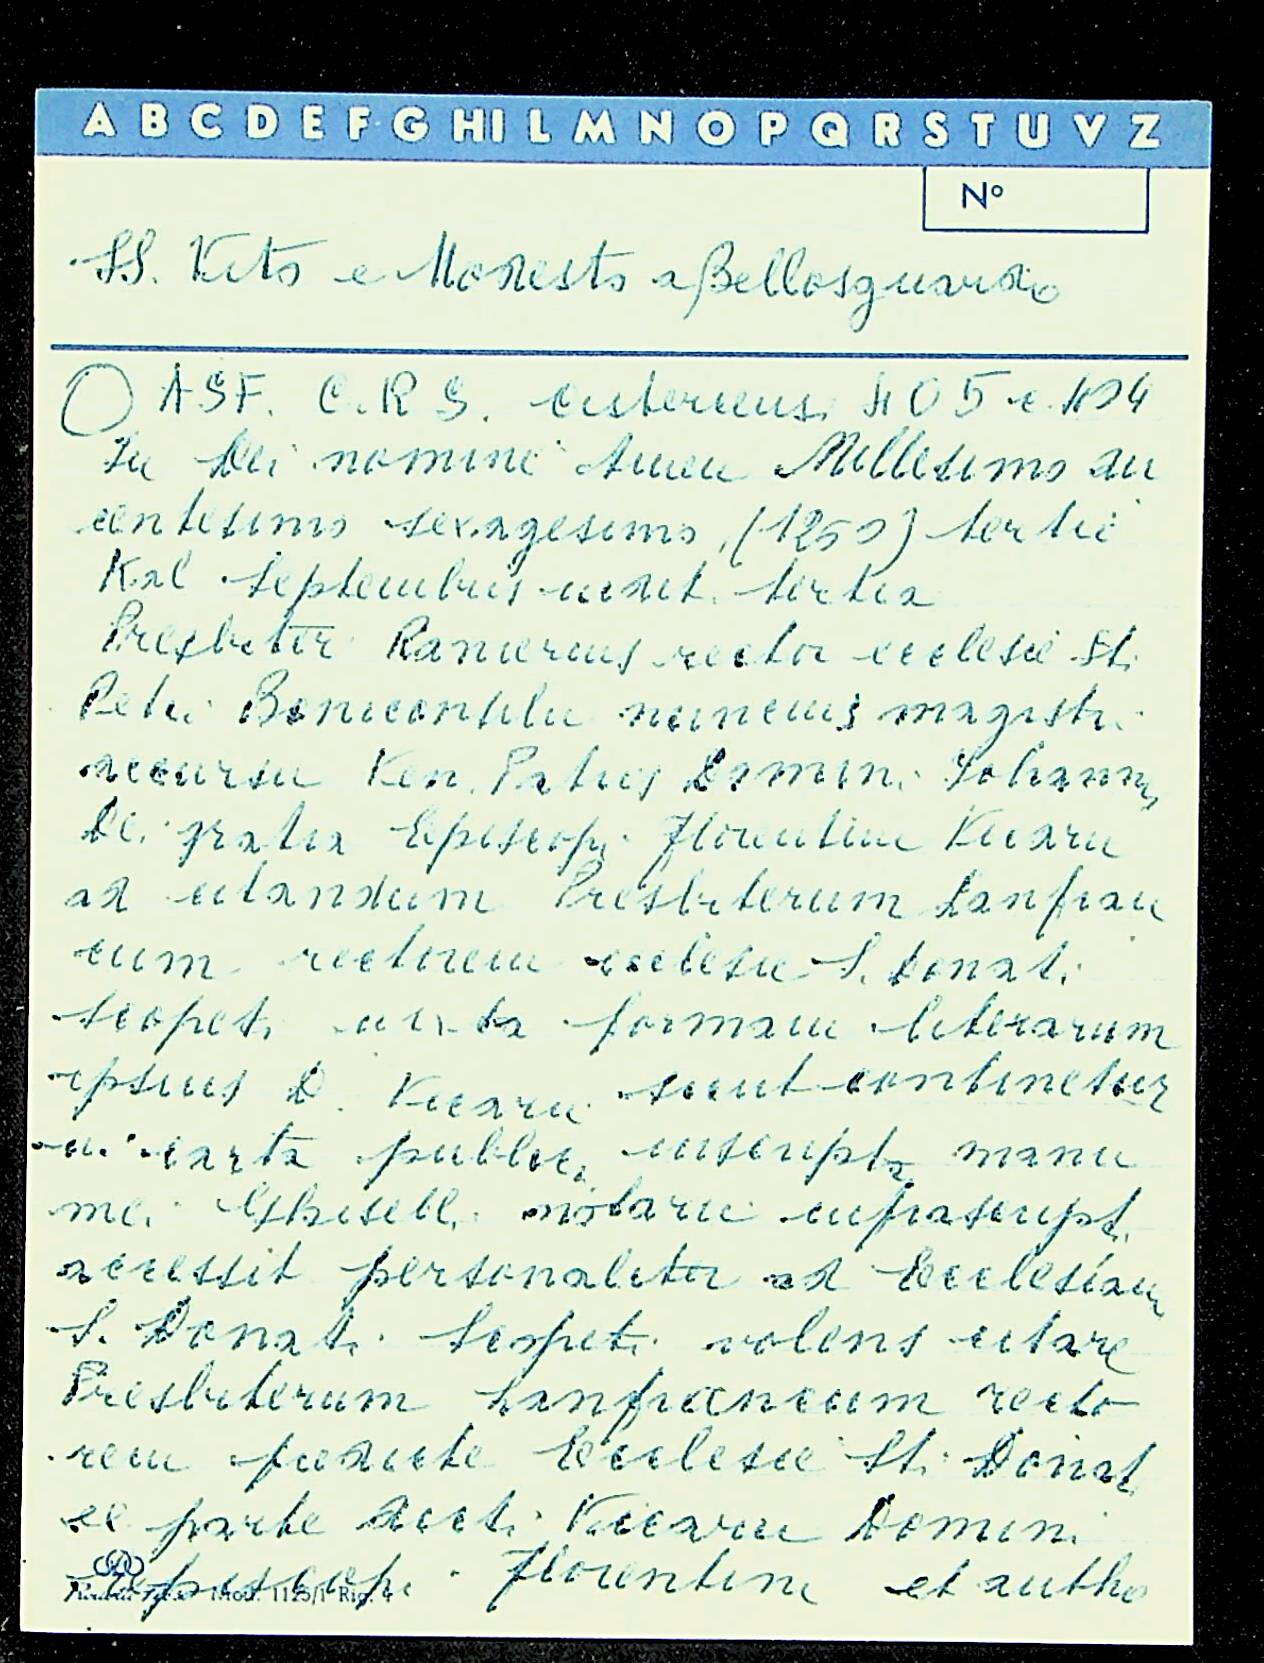 A B C D E F G H I L M N O P Q R S T U V Z
N°
SS. Vito e Modesto a Bellosguardo
A S F. C. R. S. cisterciensi 405 e 404
In Dei nomine Amen Millesimo du
centesimo sexagesimo (1260) tertie
Kal Septembris indit. tertia
Presbiter Ranierius rector ecclesie St.
Petri Boniconsilii nuncius magistri
accursii Ven. Patris Domini Johannis
Dei gratia Episcopi Florentini Vicarii
ad citandum Presbiterum Lanfran
cum rectorem ecclesie S. Donati
Scopeti iuxta formam literarum
ipsius D. Vicarii sicut continetur
in carta public. inscripta manu
mei Ghiselli notarii infrascript.
accessit personaliter ad Ecclesiam
S. Donati Scopeti volens citare
Presbiterum Lanfrancum recto
rem predicte Ecclesie St. Donati
ex parte dicti Vicarii Domini
Episcopi Florentini et autho
Mod. 1125/1 Rig. 4